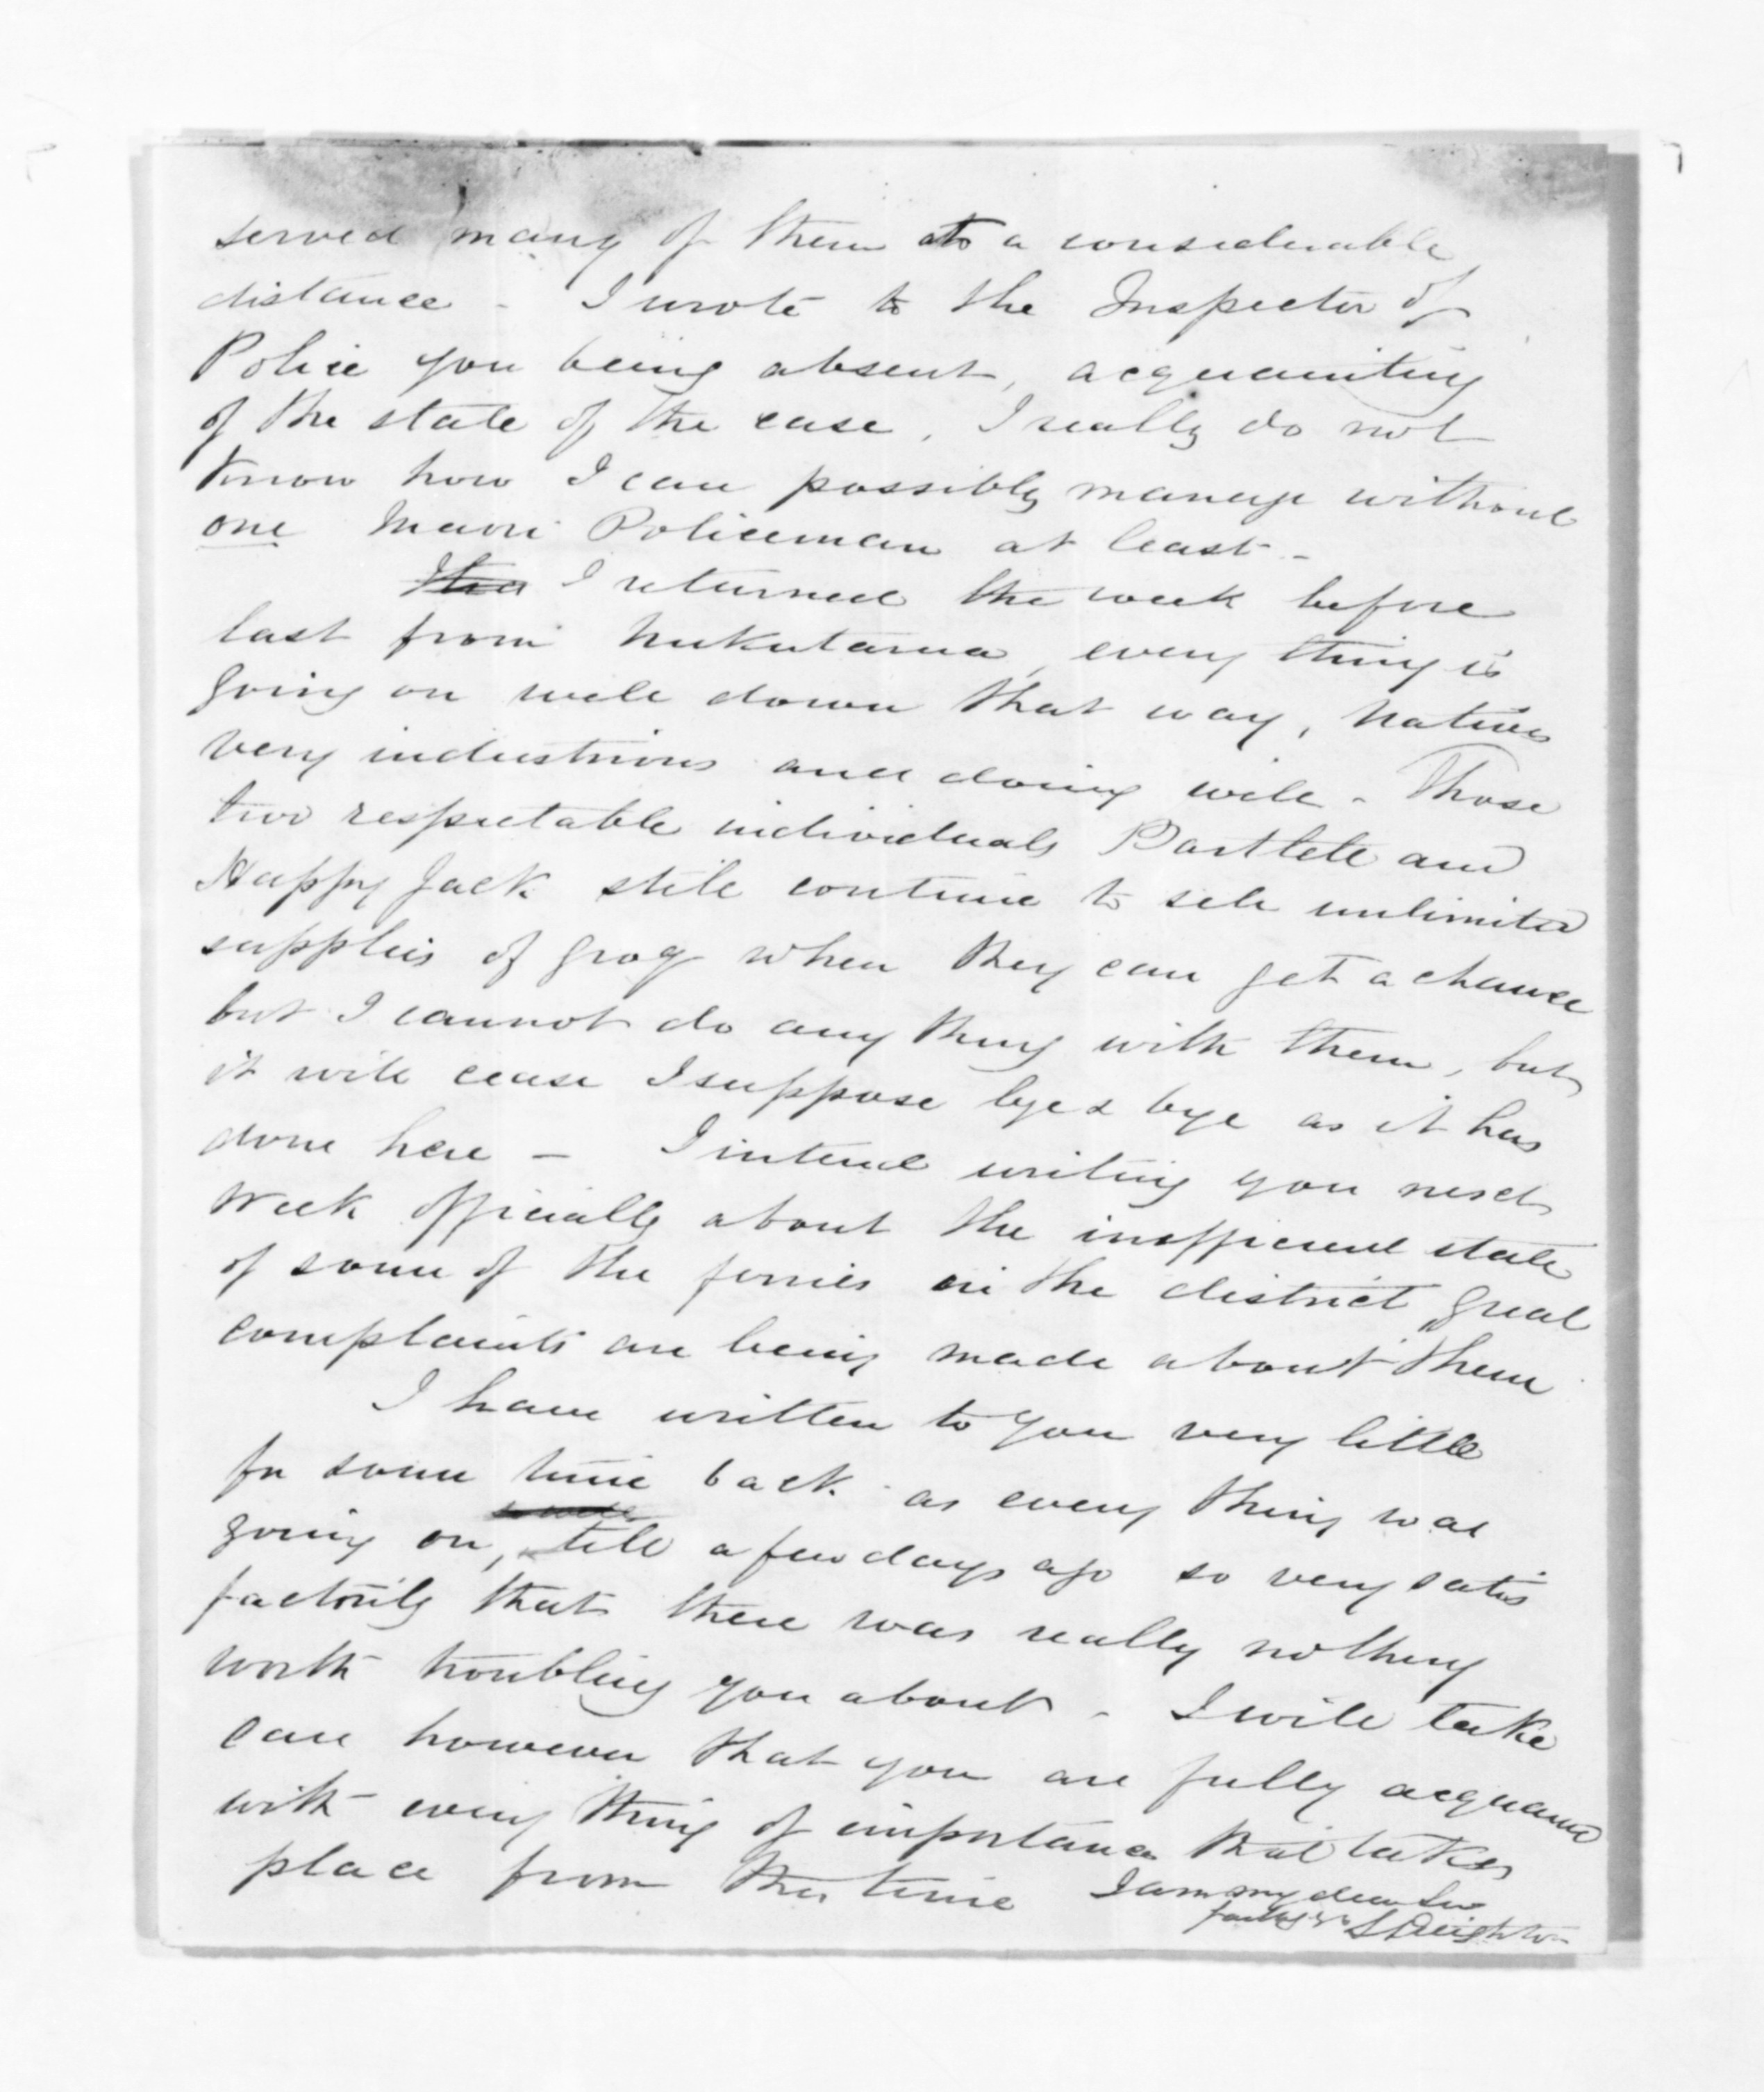 served many of them at a considerable
distance - I wrote to the Inspector of
Police you being absent, acquainting
of the state of the case, I really do not
know how I can possibly manage without
one Maori Policeman at least -
I returned the week before
last from Nukutaurua, every thing is
going on well down that way, Natives
very industrious and doing well - Those
two respectable individuals Bartlett and
Happy Jack still continue to sell unlimited
supplies of grog when they can get a chance
but I cannot do any thing with them, but
it will cease I suppose bye & bye as it has
done here - I intend writing you next
week officially about the inefficient state
of some of the ferries in the district, great
complaints are being made about them
I have written to you very little
for some time back as every thing was
going on, till a few days ago so very satis
factorily that there was really nothing
worth troubling you about - I will take
care however that you are fully acquainted
with every thing of importance that takes
place from this time I am my dear Sir
faithfy yrs S Deighton